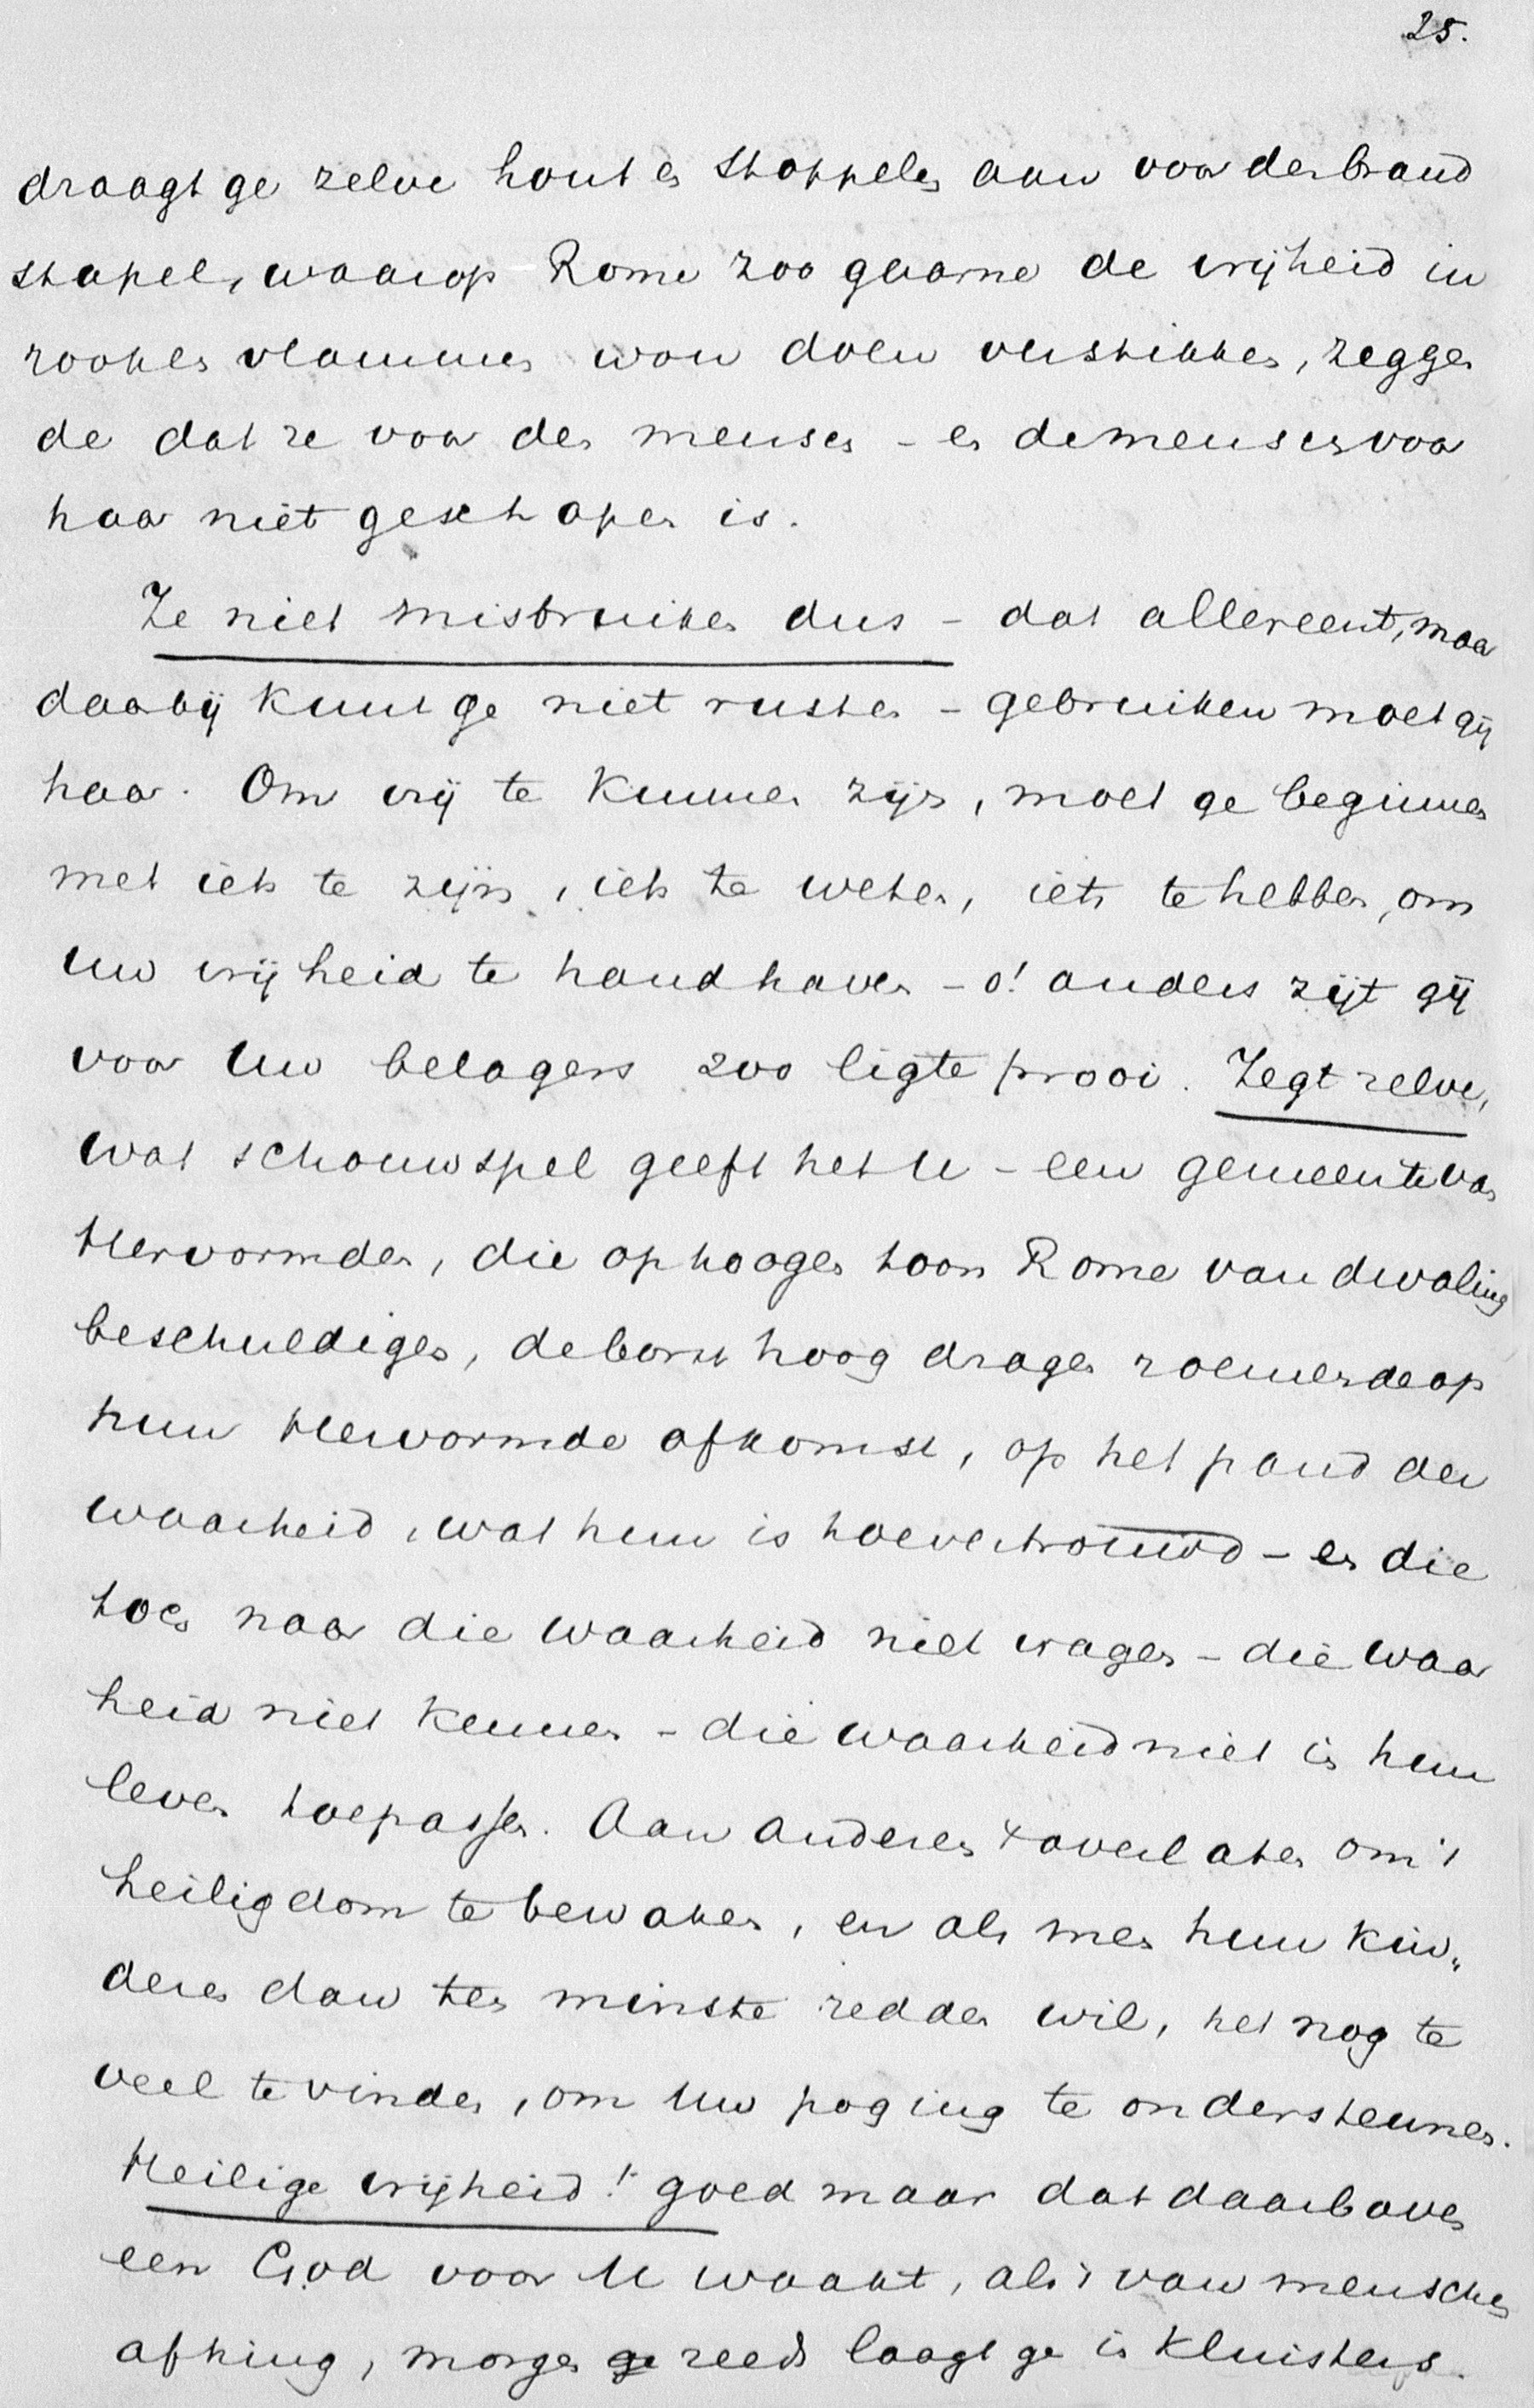 25.
draagt ge zelve hout en stoppelen aan voor den brand
stapel, waarop Rome zoo gaarne de vrijheid in
rook en vlammen wou doen verstikken, zeggen
de dat ze voor den mensch – en de mensch voor
haar niet geschapen is.
Ze niet misbruiken dus – dat allereerst, maar
daarbij kunt ge niet rusten – gebruiken moet gij
haar. Om vrij te kunnen zijn, moet ge beginnen
met iets te zijn, iets te weten, iets te hebben, om
uw vrijheid te handhaven – o! anders zijt gij
voor Uw belagers zoo ligte prooi. Zegt zelve,
wat schouwspel geeft het U – een gemeente van
Hervormden, die op hoogen toon Rome van dwaling
beschuldigen, de borst hoog dragen roemende op
hun Hervormde afkomst, op het pand der
waarheid, wat hun is toevertrouwd – en die
toch naar die waarheid niet vragen – die waar
heid niet kennen – die waarheid niet in hun
leven toepassen. Aan anderen overlaten om 't
heiligdom te bewaken, en als men hun kin„
deren dan ten minste redden wil, het nog te
veel te vinden, om Uw poging te ondersteunen.
Heilige vrijheid! goed maar dat daarboven
een God voor U waakt, als 't van menschen
afhing, morgen reeds laagt ge in kluisters.